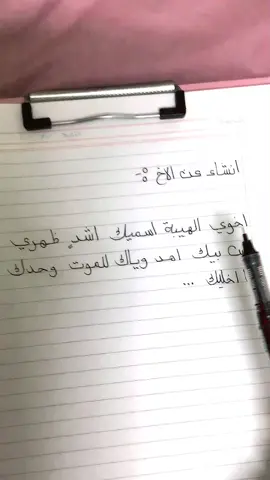 انشاء عن الاخ :-
اخوي الهيبة اسميك اشد ظهري
بيك امد وياك للموت وحدك
اخليك ...